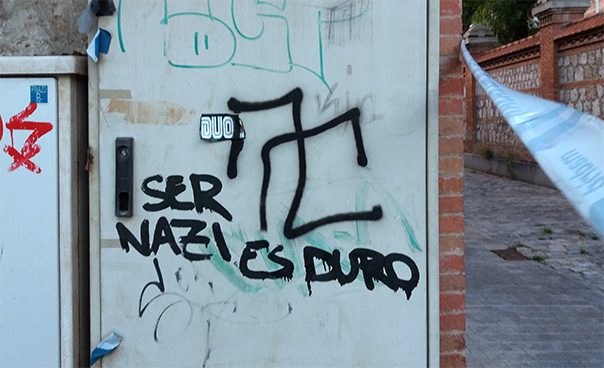 DUO
SER
NAZI ES DURO
B